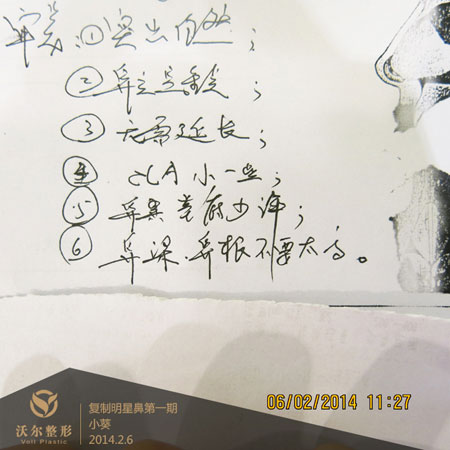 审美:①突出自然;
②鼻
③无需延长;
④ 小一些;
⑤鼻基底少许;
⑥鼻梁、鼻根不要太高。
06/02/2014 11:27
沃尔整形
Voll Plastic
复制明星鼻第一期
小葵
2014.2.6